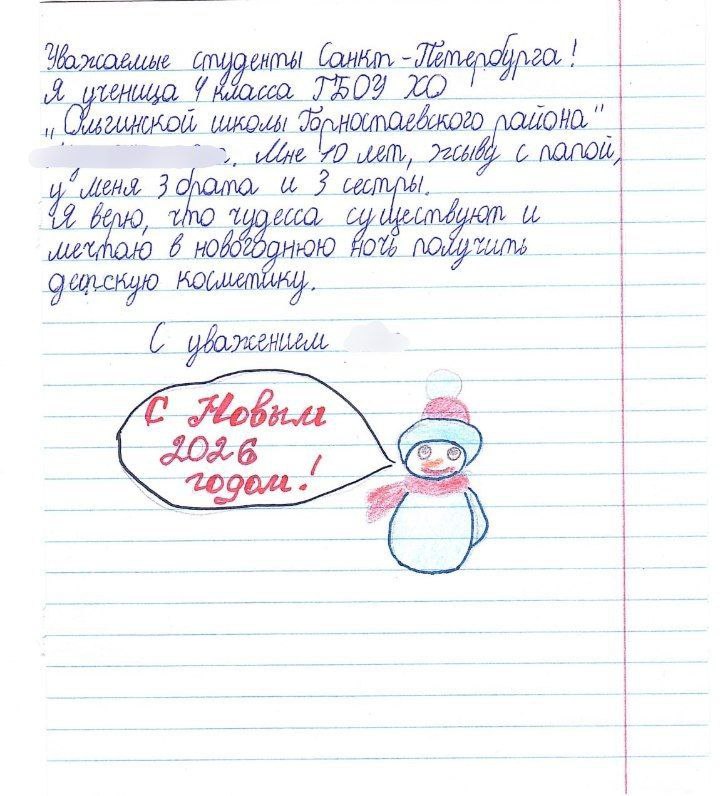 Уважаемые студенты Санкт-Петербурга!
Я ученица 4 класса ГБОУ ХО
"Ольгинской школы Горностаевского района"
. Мне 10 лет, жыву с папой,
у меня 3 брата и 3 сестры.
Я верю, что чудесса существуют и
мечтаю в новогоднюю ночь получить
детскую косметику.
С уважением
С Новым
2026
годом!